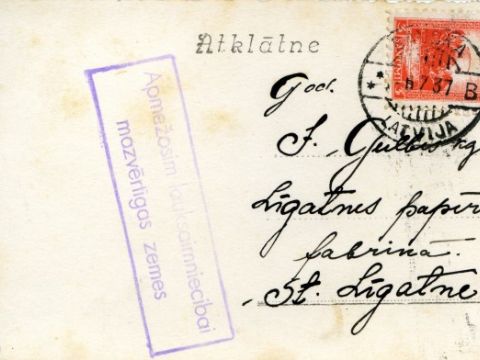 Atklātne
Apmežosim lauksaimniecībai
mazvērtīgas zemes
7.37 B
LATVIJA
God.
J. Gulbis kg
Līgatnes papīr
fabrikā.
St. Līgatne